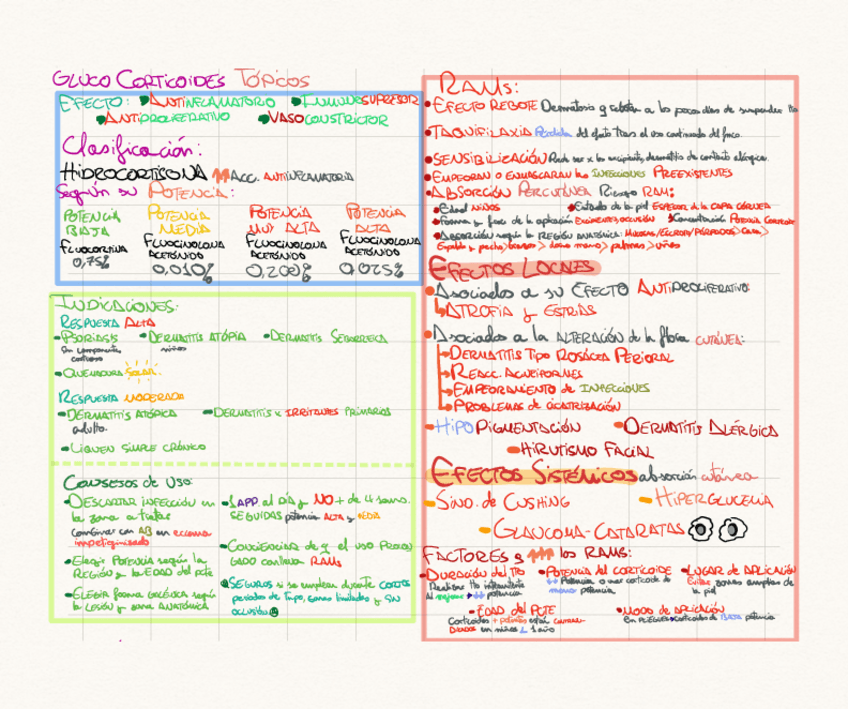 GLUCO CORTICOIDES TÓPICOS
EFECTO: ANTIINFLAMATORIO INMUNOSUPRESOR
ANTIPROLIFERATIVO VASOCONSTRICTOR
Clasificación:
HIDROCORTISONA ACC. ANTIINFLAMATORIA
Según su POTENCIA:
POTENCIA BAJA
FLUOCORTINA
0,75%
POTENCIA MEDIA
FLUOCINOLONA ACETÓNIDO
0,010%
POTENCIA MUY ALTA
FLUOCINOLONA ACETÓNIDO
0,200%
POTENCIA ALTA
FLUOCINOLONA ACETÓNIDO
0,025%
INDICACIONES:
RESPUESTA ALTA
PSORIASIS DERMATITIS ATÓPIA DERMATITIS SEBORREICA
niños
QUEMADURA SOLAR
RESPUESTA MODERADA
DERMATITIS ATÓPICA DERMATITIS x IRRITANTES PRIMARIOS
adulto
LIQUEN SIMPLE CRÓNICO
CONSEJOS DE USO:
DESCARTAR INFECCIÓN en
la zona a tratar
combinar con AB en eccema
impetiginizado
Elegir POTENCIA según la
REGIÓN y la EDAD del pcte
ELEGIR forma GALÉNICA según
la LESIÓN y zona ANATÓMICA
1 APP al DÍA y NO + de 4 sem.
SEGUIDAS potencia ALTA y MEDIA
CONCIENCIAR de q el uso PROLON
GADO conlleva RAMs
SEGUROS si se emplean durante CORTOS
periodos de tmpo, zonas limitadas y SIN
OCLUSIÓN
RAMs:
EFECTO REBOTE Dermatosis q rebotan a los pocos días de suspender tto
TAQUIFILAXIA Pérdida del efecto tras el uso continuado del fmco.
SENSIBILIZACIÓN Puede ser x los excipientes, dermatitis de contacto alérgica.
EMPEORAN O ENMASCARAN las INFECCIONES PREEXISTENTES
ABSORCIÓN PERCUTÁNEA Riesgo RAM:
Edad NIÑOS Estado de la piel ESPESOR DE LA CAPA CÓRNEA
Forma y frec de la aplicación Concentración POTENCIA CORTICOIDE
Absorción según la REGIÓN ANATÓMICA: MUCOSAS/ESCROTO/PÁRPADOS > CARA >
Espalda y pecho > brazos > dorso mano > palmas > uñas
EFECTOS LOCALES
Asociados a su EFECTO ANTIPROLIFERATIVO:
ATROFIA y ESTRÍAS
Asociados a la ALTERACIÓN de la flora CUTÁNEA:
DERMATITIS TIPO ROSÁCEA PERIORAL
REACC. ACNEIFORMES
EMPEORAMIENTO de INFECCIONES
PROBLEMAS de CICATRIZACIÓN
HIPOPIGMENTACIÓN DERMATITIS ALÉRGICA
HIRUTISMO FACIAL
EFECTOS SISTÉMICOS absorción cutánea
SIND. de CUSHING HIPERGLUCEMIA
GLAUCOMA-CATARATAS
FACTORES q las RAMs:
DURACIÓN del TTO
++ potencia
POTENCIA del CORTICOIDE
++ Potencia o usar corticode de
menos potencia
LUGAR de APLICACIÓN
Evitar zonas amplias de
la piel
EDAD del PCTE
Corticoides + potentes están CONTRAIN-
DICADOS en niños < 1 año
MODO de APLICACIÓN
EN PLIEGUES corticoides de BAJA potencia